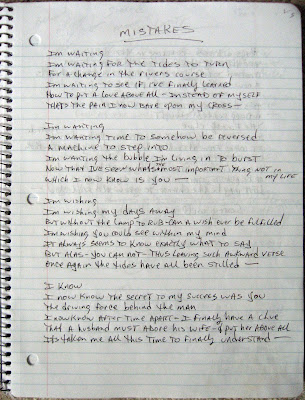 MISTAKES
I'm WAITING
I'm WAITING FOR THE TIDES TO TURN
FOR A CHANGE IN THE RIVERS COURSE
I'm WAITING TO SEE IF I'VE FINALLY LEARNED
HOW TO PUT A LOVE ABOVE ALL - INSTEAD OF MYSELF
THAT'S THE PAIN I NOW BARE UPON MY CROSS -
I'm WANTING
I'm WANTING TIME TO SOMEHOW BE REVERSED
A MACHINE TO STEP INTO
I'm WANTING THE BUBBLE I'm LIVING IN TO BURST
NOW THAT I'VE SEEN WHATS MOST IMPORTANT THING NOT IN MY LIFE
WHICH I NOW KNOW IS YOU -
I'm WISHING
I'm WISHING MY DAYS AWAY
BUT WITHOUT THE LAMP TO RUB - CAN A WISH EVER BE FULFILLED
I'm WISHING YOU COULD SEE WITHIN MY MIND
IT ALWAYS SEEMS TO KNOW EXACTLY WHAT TO SAY
BUT ALAS - YOU CAN NOT - THUS LEAVING SUCH AWKWARD VERSE
ONCE AGAIN THE TIDES HAVE ALL BEEN STILLED -
I KNOW
I NOW KNOW THE SECRET TO MY SUCCESS WAS YOU
THE DRIVING FORCE BEHIND THE MAN
I NOW KNOW AFTER TIME APART - I FINALLY HAVE A CLUE
THAT A HUSBAND MUST ABOVE HIS WIFE - & PUT HER ABOVE ALL
IT'S TAKEN ME ALL THIS TIME TO FINALLY UNDERSTAND -